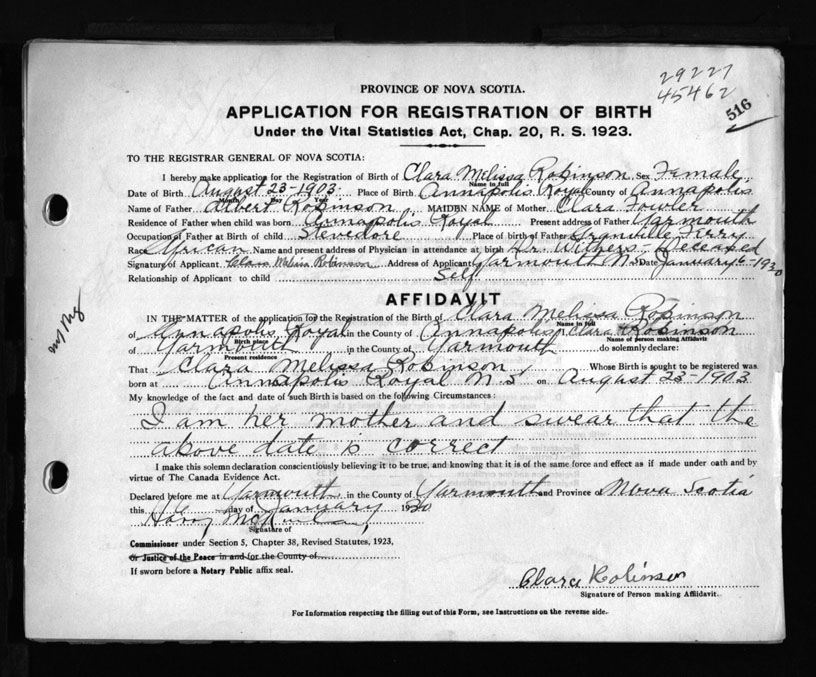 29227
45462
516
PROVINCE OF NOVA SCOTIA.
APPLICATION FOR REGISTRATION OF BIRTH
Under the Vital Statistics Act, Chap. 20, R. S. 1923.
TO THE REGISTRAR GENERAL OF NOVA SCOTIA:
I hereby make application for the Registration of Birth of Clara Melissa Robinson Sex Female
Name in full
Date of Birth August 23-1903. Place of Birth Annapolis Royal County of Annapolis
Month Day Year
Name of Father Albert Robinson MAIDEN NAME of Mother Clara Fowler
Residence of Father when child was born Annapolis Royal Present address of Father Yarmouth
Occupation of Father at Birth of child Stevedore Place of birth of Father Granville Ferry
Race African Name and present address of Physician in attendance at birth Dr. Withers - Deceased
Signature of Applicant Clara Melissa Robinson Address of Applicant Yarmouth N.S Date January 6-1930
Relationship of Applicant to child Self
AFFIDAVIT
IN THE MATTER of the application for the Registration of the Birth of Clara Melissa Robinson
Name in full
of Annapolis Royal in the County of Annapolis Clara Robinson
Birth place Name of person making Affidavit
of Yarmouth in the County of Yarmouth do solemnly declare:
Present residence
That Clara Melissa Robinson, Whose Birth is sought to be registered was
born at Annapolis Royal N.S on August 23-1903
My knowledge of the fact and date of such Birth is based on the following Circumstances:
I am her mother and swear that the
above date is correct
I make this solemn declaration conscientiously believing it to be true, and knowing that it is of the same force and effect as if made under oath and by
virtue of The Canada Evidence Act.
Declared before me at Yarmouth in the County of Yarmouth and Province of Nova Scotia
this day of January 1930
Signature of
Commissioner under Section 5, Chapter 38, Revised Statutes, 1923,
or Justice of the Peace in and for the County of
If sworn before a Notary Public affix seal.
Clara Robinson
Signature of Person making Affidavit.
For Information respecting the filling out of this Form, see Instructions on the reverse side.